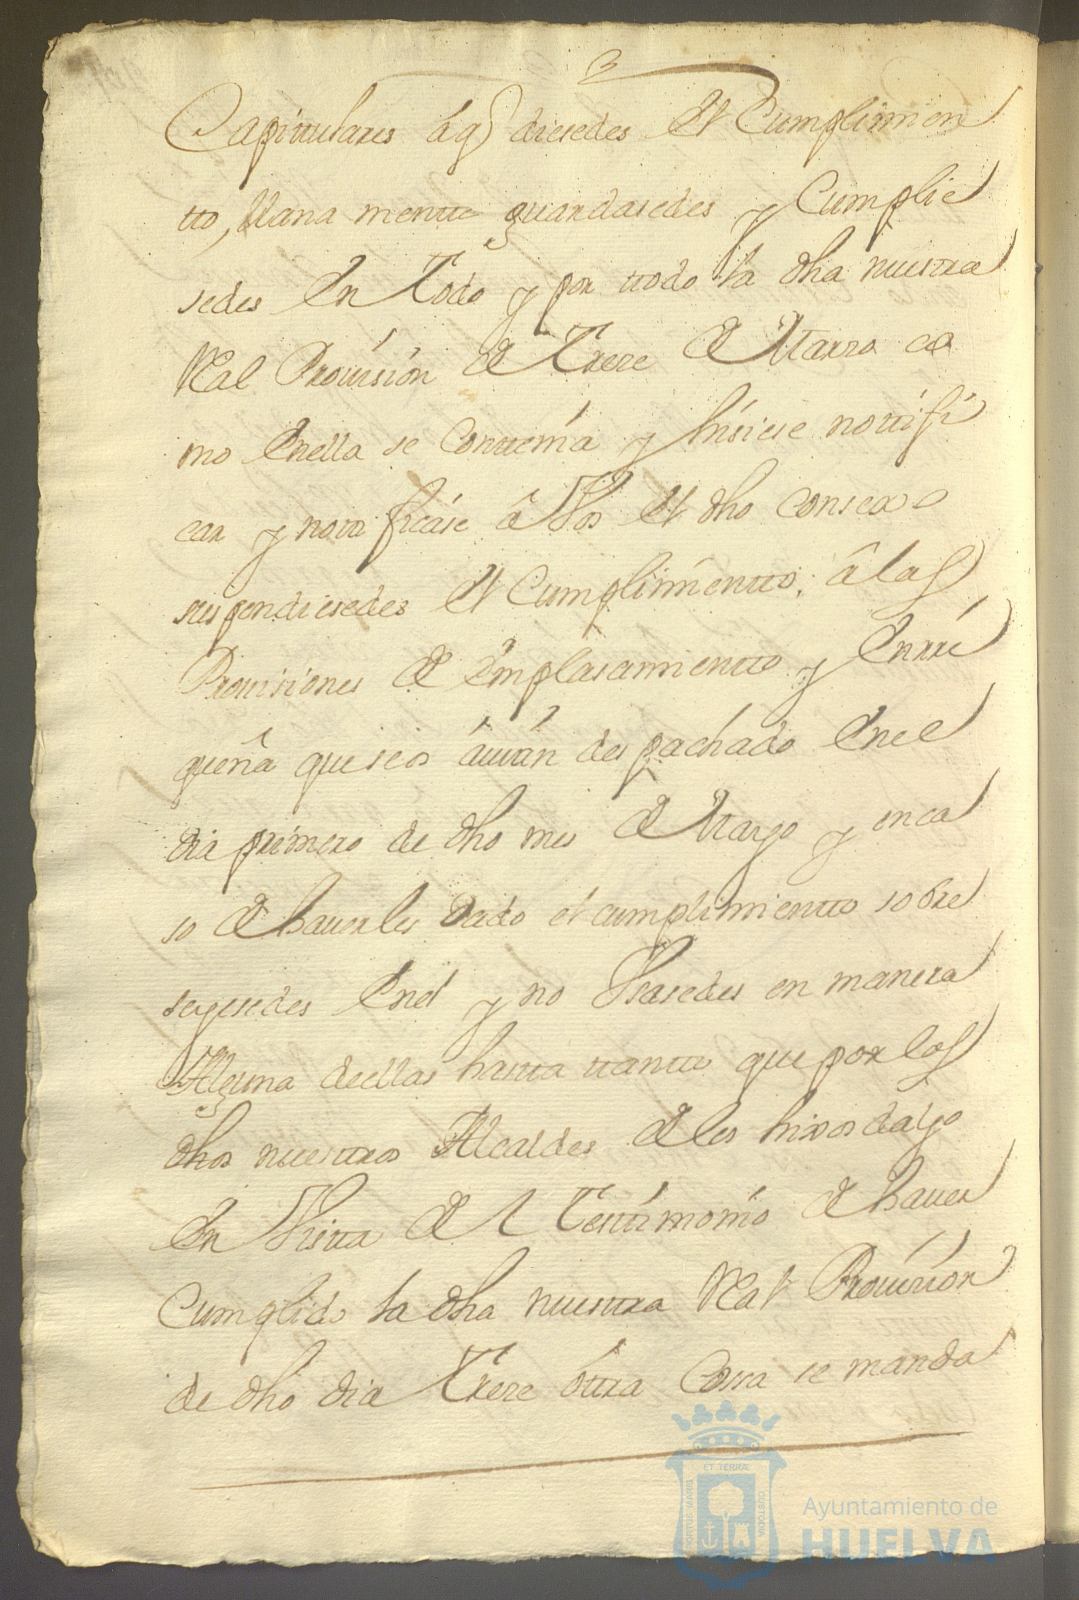 Capitulares â q̃ diesedes el Cumplimien
tto, llana mentte guardasedes y Cumplie
sedes En Todo y por ttodo la dha nuestra
Real Provisión de Treze de Marzo co
mo Enella se Conttenía y hísiese nottifi
car y nottificáse â Vos el dho consexo
suspendiesedes el Cumplimientto, â las
Provisiones de emplasamientto y
que se os despachado Enel
dia primero de dho mes de Marzo y en ca
so de haverles dado el cumplimientto sobre
seyesedes Enel y no Vsasedes en manera
Alguna deellas hasta ttantto que por los
dhos nuesttros Alcaldes de los hixosdalgo
En Vistta del Testtimonio de haver
Cumplido la dha nuesttra Real Provision
de dho dia Treze óttra Cossa se manda
PORTUS MARIS
ET TERRÆ
CUSTODIA
Ayuntamiento de
HUELVA